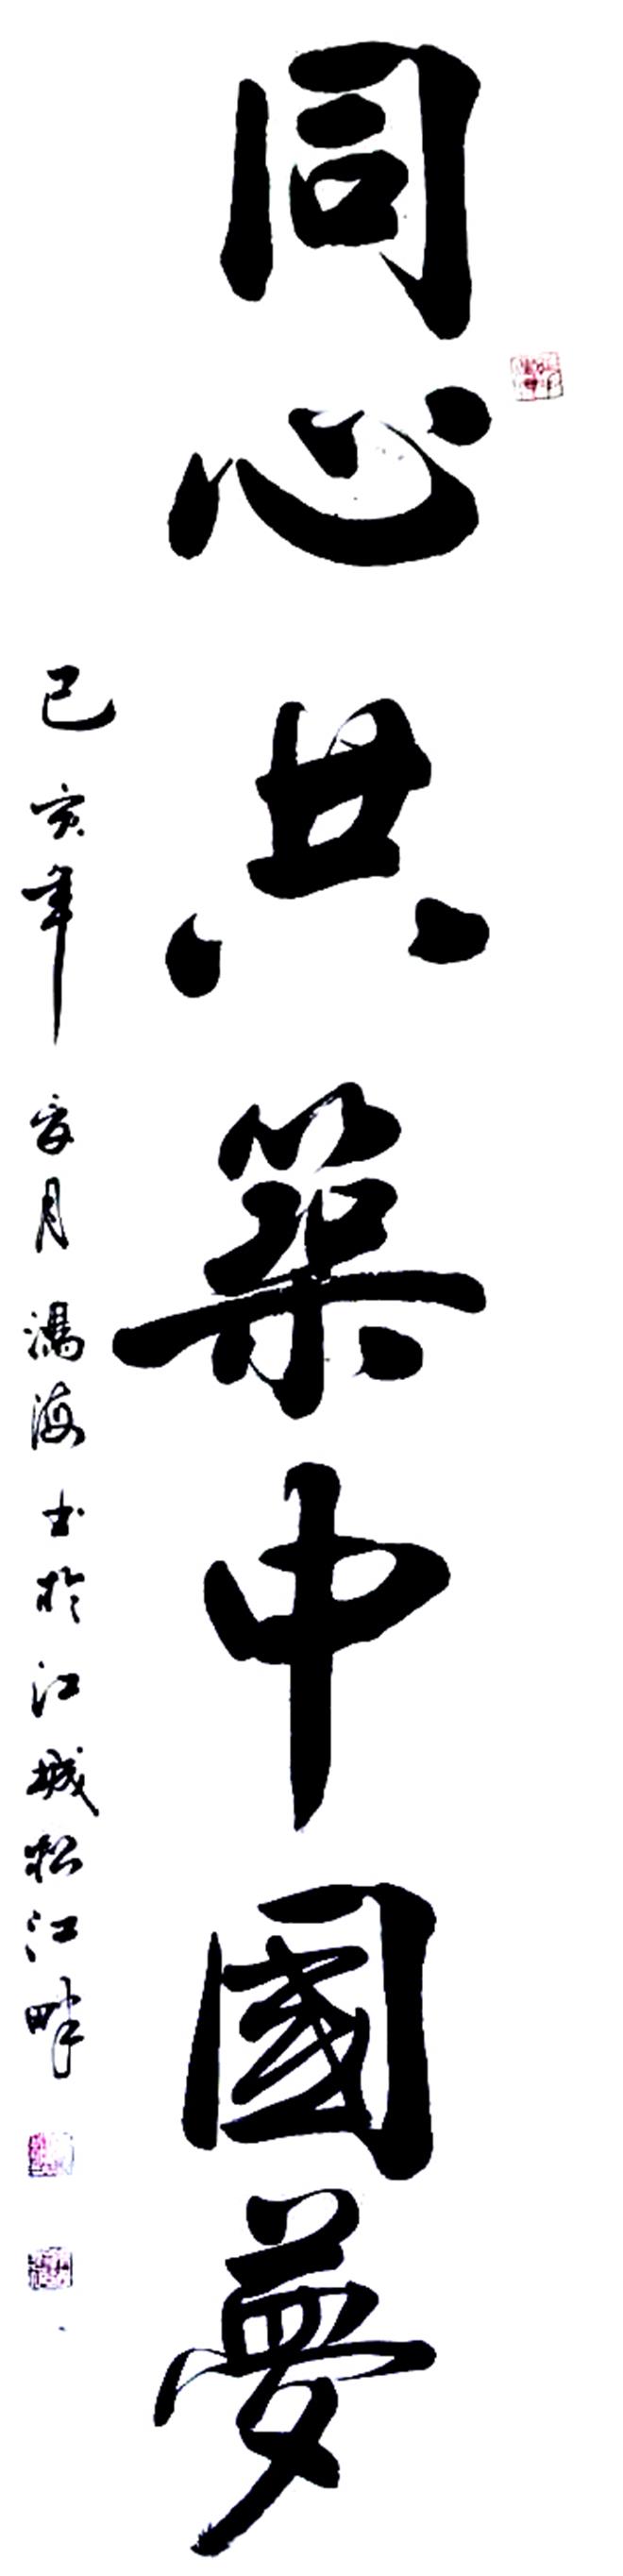 同心共築中國夢
己亥年亥月鴻海書於江城松江畔